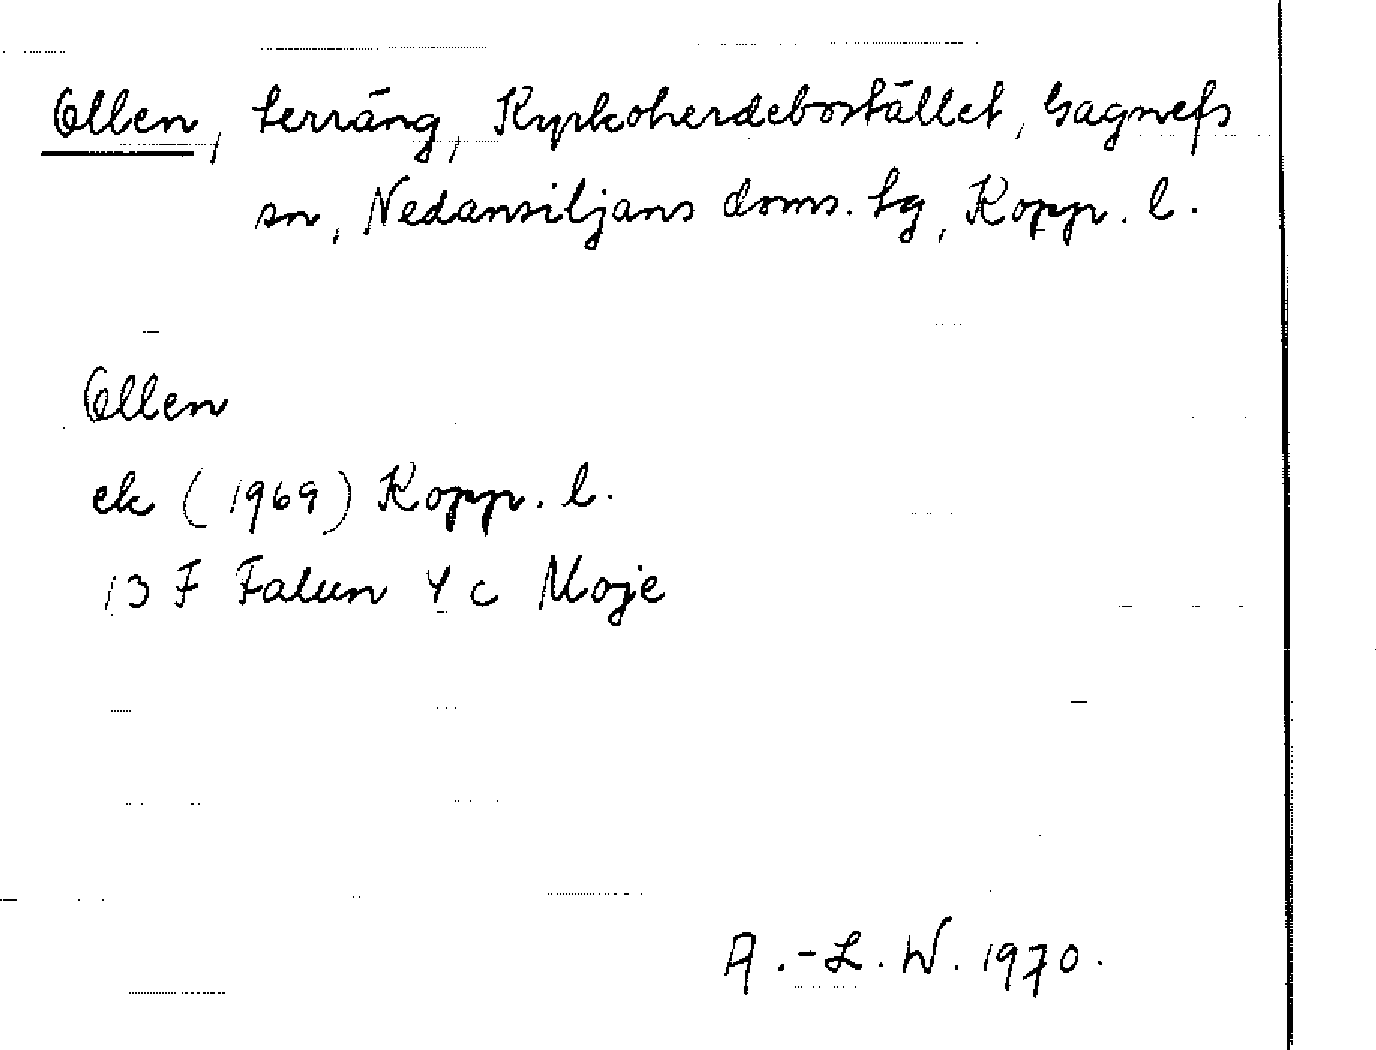 Ollen, terräng, Kyrkoherdebostället, Gagnefs
sn, Nedansiljans doms. tg, Kopp. l.
Ollen
ek (1969) Kopp. l.
13 F Falun 4 c Moje
A.-L. W. 1970.